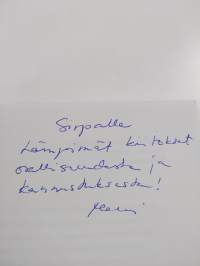 Sirpalle
Lämpimät kiitokset
osallisuudesta ja
kannustuksesta!